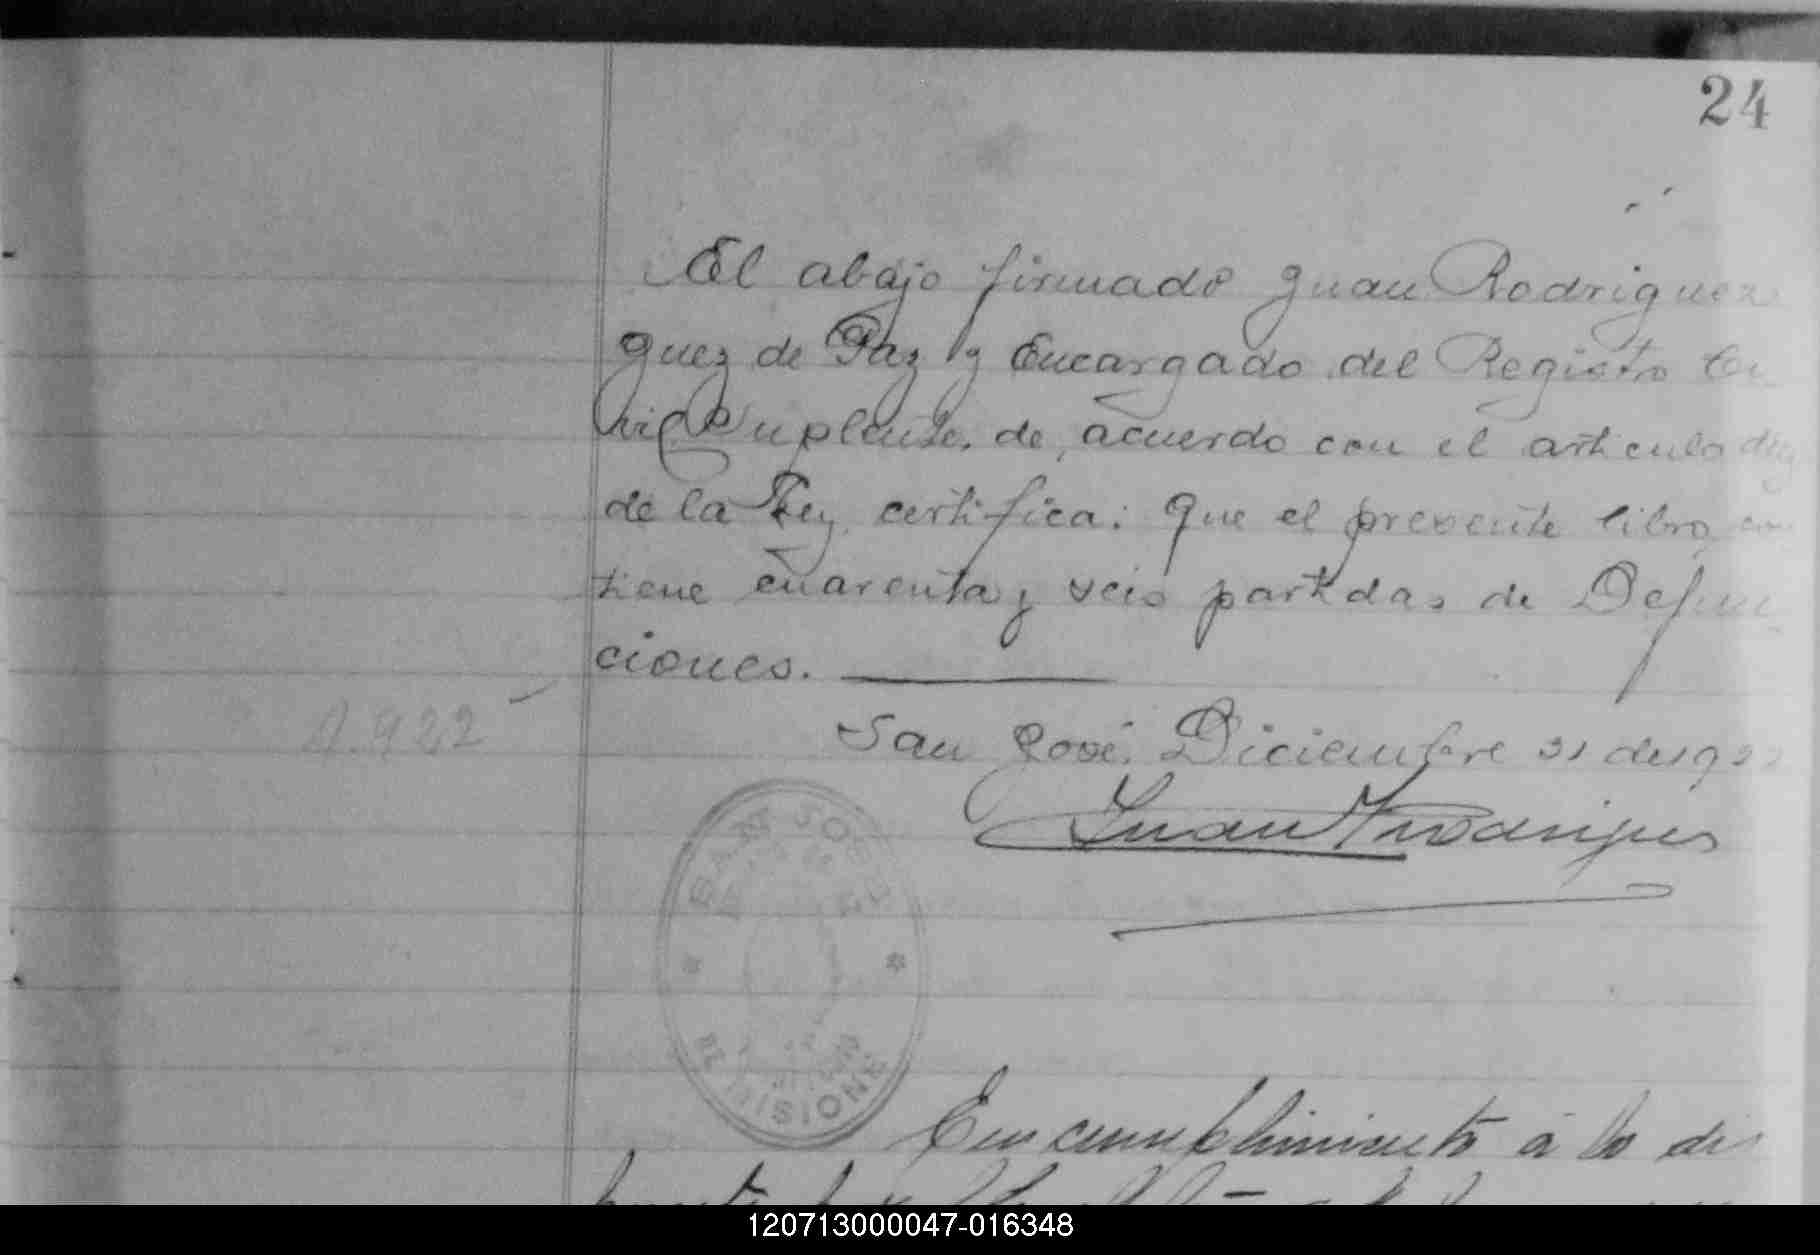 24
El abajo firmado Juan Rodriguez
Juez de Paz y Encargado del Registro Ci
vil Suplente, de acuerdo con el articulo diez
de la Ley certifica: Que el presente libro con
tiene cuarenta y seis partidas de Defun
ciones.
1.922
San José, Diciembre 31 de 1922
Juan Rodriguez
JUZGADO
MISIONES
En cumplimiento á lo dis
120713000047-016348